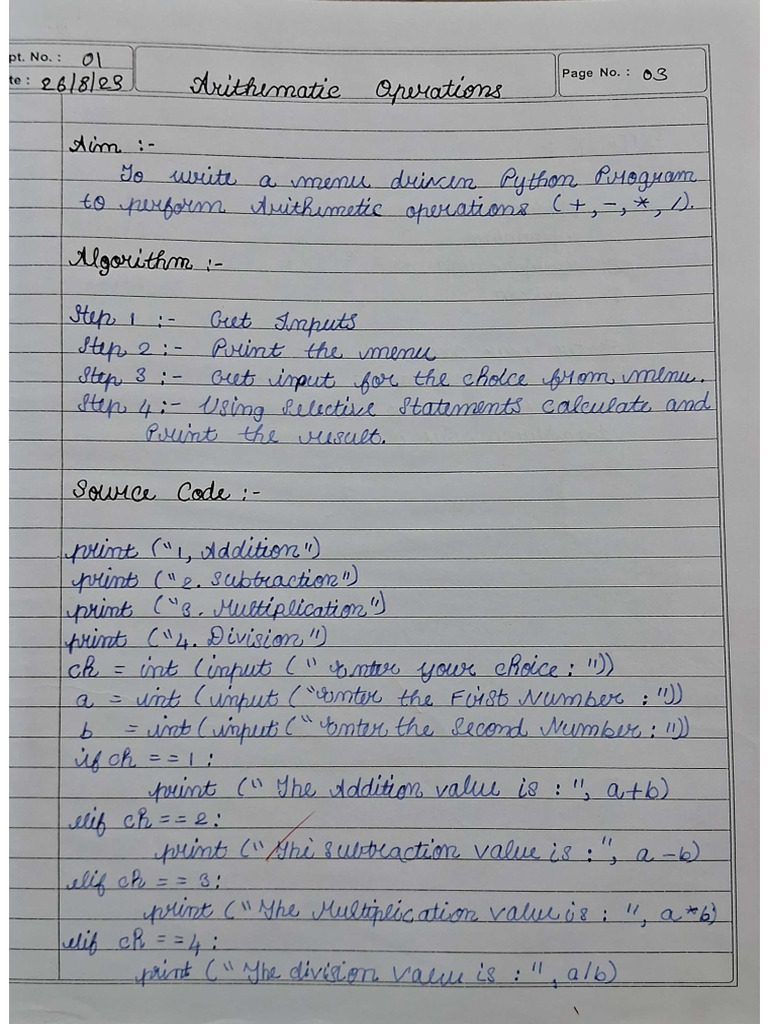 pt. No. : 01
te : 26/8/23
Arithematic Operations
Page No. : 03
Aim :-
To write a menu driven Python Program
to perform Arithimetic operations (+, -, *, /).
Algorithm :-
Step 1 :- Get Inputs
Step 2 :- Print the menu
Step 3 :- Get input for the choice from menu.
Step 4 :- Using Selective Statements calculate and
Print the result.
Source Code :-
print ("1, Addition")
print ("2. Subtraction")
print ("3. Multiplication")
print ("4. Division")
ch = int (input (" Enter your choice : "))
a = int (input ("Enter the First Number : "))
b = int (input (" Enter the Second Number : "))
if ch == 1 :
print (" The Addition value is : ", a+b)
elif ch == 2 :
print (" The Subtraction value is : ", a - b)
elif ch == 3 :
print (" The Multiplication value is : ", a*b)
elif ch == 4 :
print (" The division value is : ", a/b)